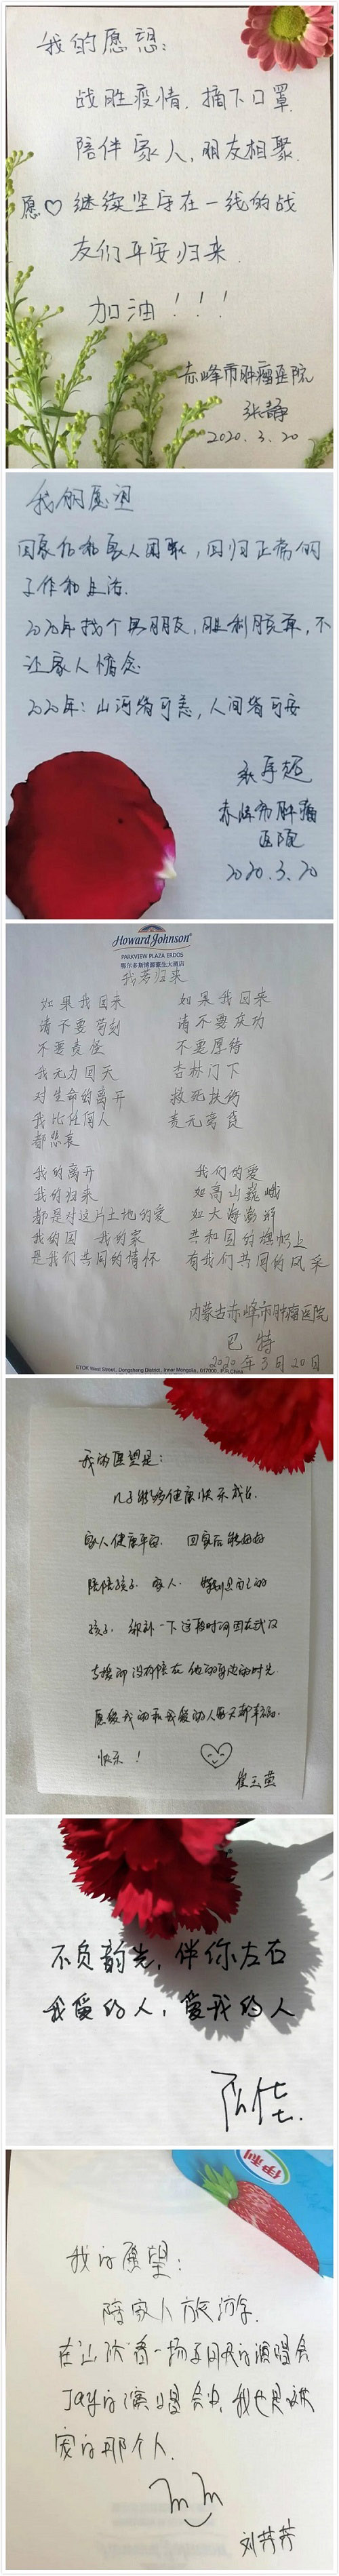 我的愿想：
战胜疫情，摘下口罩
陪伴家人，朋友相聚
愿♡继续坚守在一线的战
友们平安归来
加油！！！
赤峰市肿瘤医院
张静
2020.3.20
我的愿望
回家后和家人团聚，回归正常的
工作和生活.
2020年找个男朋友，胜利脱单，不
让家人惦念
2020年：山河皆可恙，人间皆可安
赤峰市肿瘤
医院
2020.3.20
Howard Johnson
PARKVIEW PLAZA ERDOS
鄂尔多斯博源豪生大酒店
我若归来
如果我回来
请不要苛刻
不要责怪
我无力回天
对生命的离开
我比任何人
都悲哀
如果我回来
请不要庆功
不要厚待
杏林门下
救死扶伤
责无旁贷
我的离开
我的归来
都是对这片土地的爱
我的国 我的家
是我们共同的情怀
我们的爱
如高山巍峨
如大海澎湃
共和国的旗帜上
有我们共同的风采
内蒙古赤峰市肿瘤医院
巴特
2020年3月20日
ETOK West Street, Dongsheng District, Inner Mongolia, 017000, P.R.China
我的愿望是：
儿子能够健康快乐成长.
家人健康平安. 回家后能好好
陪陪孩子. 家人. 特别是自己的
孩子. 弥补一下这段时间因在武汉
支援而没有陪在他的身边的时光.
愿爱我的和我爱的人每天都幸福.
快乐！
不负韵光，伴你左右
我爱的人，爱我的人
伊利
我的愿望：
陪家人旅游.
在让我看一场周杰伦的演唱会
Jay的演唱会中，我也是被
宠的那个人.
刘芳芳